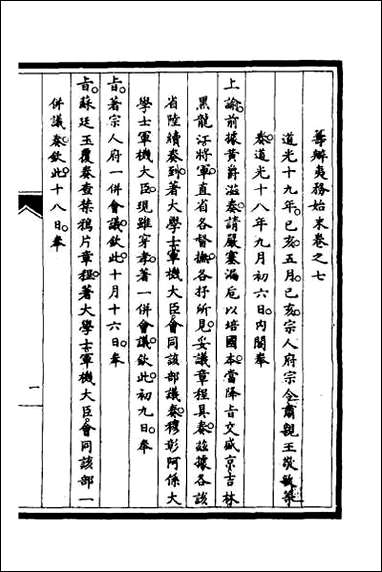 籌辦夷務始末卷之七
道光十九年己亥五月己亥宗人府宗令肅親王敬敏等
奏道光十八年九月初六日內閣奉
上諭前據黃爵滋奏請嚴塞漏卮以培國本當降旨交盛京吉林
黑龍江將軍直省各督撫各抒所見妥議章程具奏茲據各該
省陸續奏到著大學士軍機大臣會同該部議奏穆彰阿係大
學士軍機大臣現雖穿孝著一併會議欽此初九日奉
旨著宗人府一併會議欽此十月十六日奉
旨蘇廷玉覆奏查禁鴉片章程著大學士軍機大臣會同該部一
併議奏欽此十八日奉
一